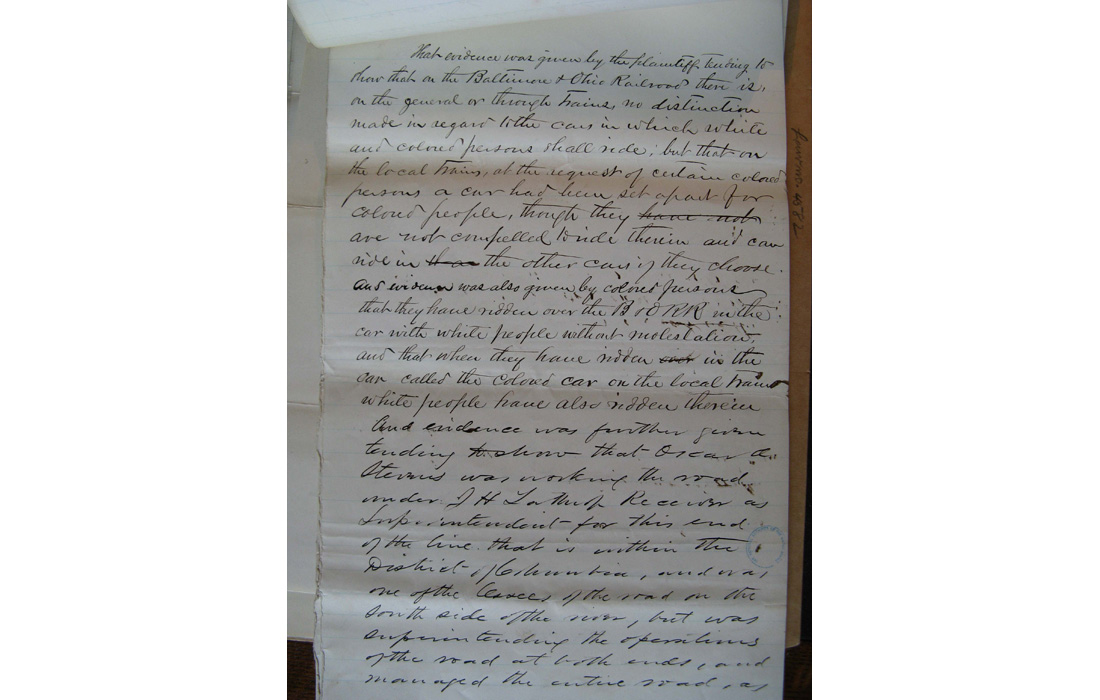 That evidence was given by the plaintiff tending to
show that on the Baltimore & Ohio Railroad there is,
on the general or through trains, no distinction
made in regard to the cars in which white
and colored persons shall ride; but that on
the local trains, at the request of certain colored
persons a car had been set apart for
colored people, though they have not
are not compelled to ride therein and can
ride in the other cars if they choose.
And evidence was also given by colored persons
that they have ridden over the B & O RR in the
car with white people without molestation,
and that when they have ridden over in the
car called the colored car on the local trains
white people have also ridden therein
And evidence was further given
tending to show that Oscar A.
Stevens was working the road
under J H Lathrop Receiver as
Superintendent for this end
of the line that is within the
District of Columbia, and was
one of the lessees of the road on the
south side of the river, but was
superintending the operations
of the road at both ends, and
managed the entire road, as